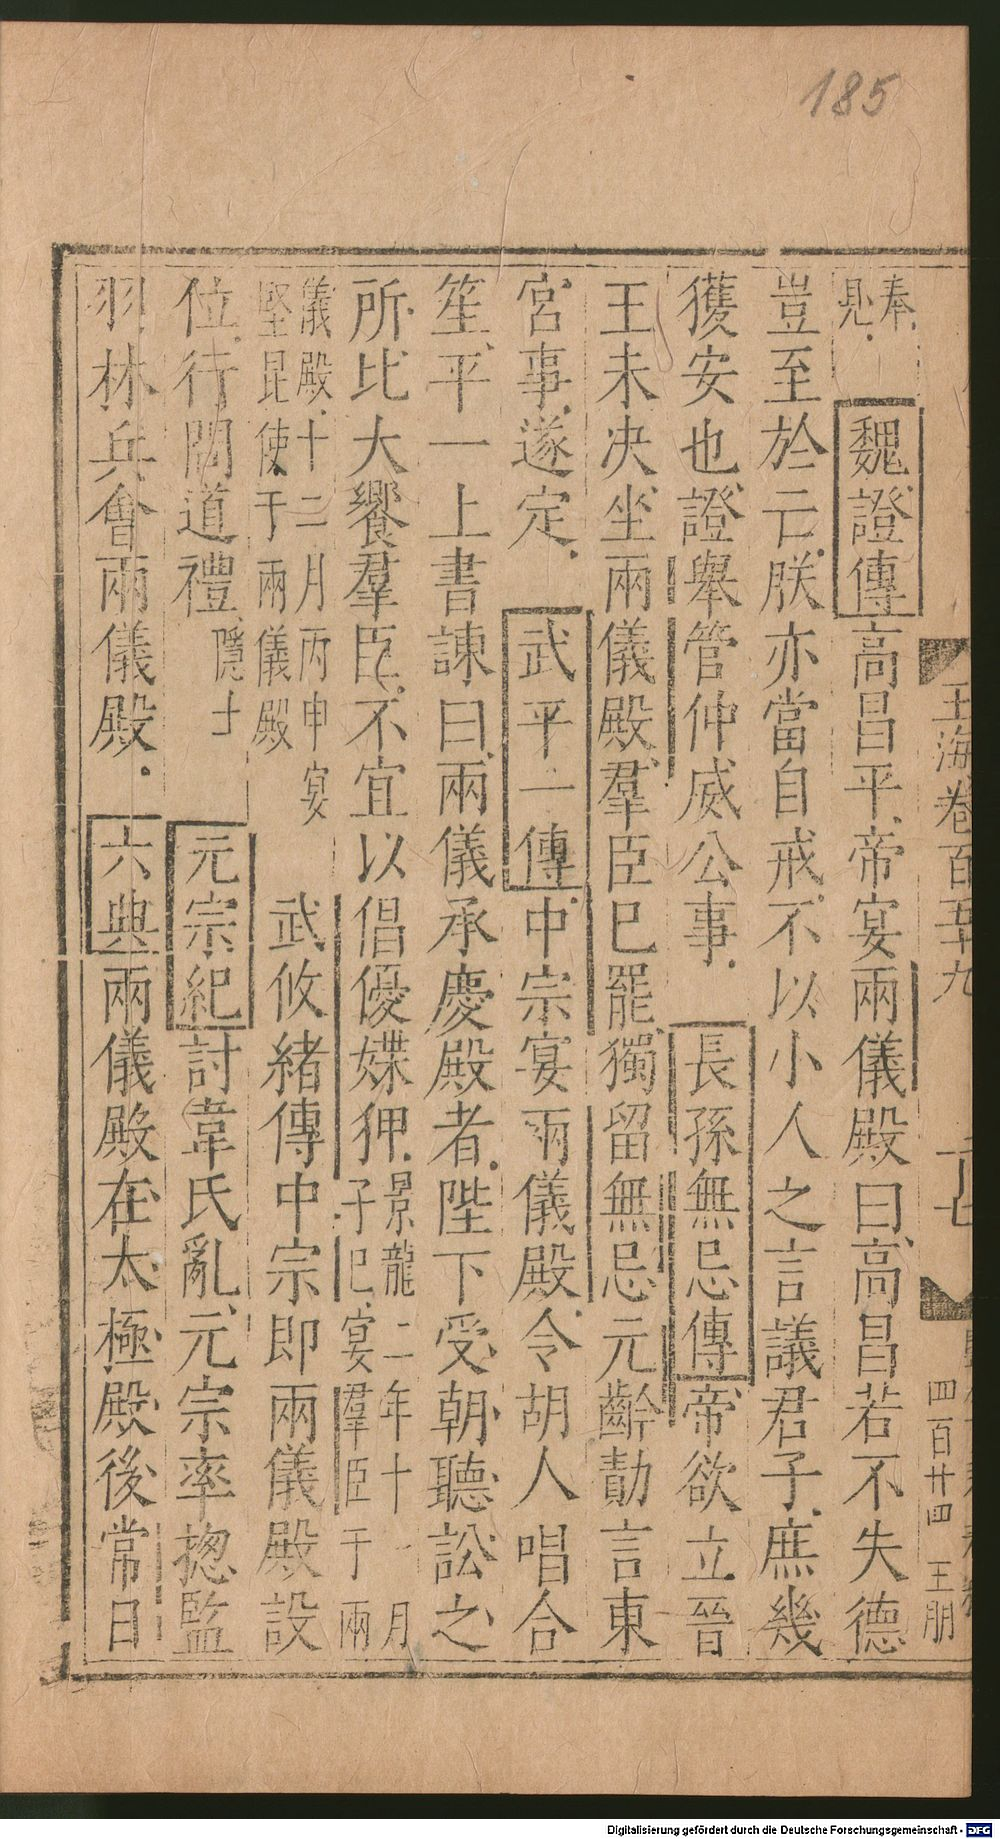 185
玉海卷百五十九
四百廿四 王朋
奉
見
魏證傳高昌平帝宴兩儀殿曰高昌若不失德
豈至於亡朕亦當自戒不以小人之言議君子庶幾
獲安也證舉管仲威公事 長孫無忌傳帝欲立晉
王未决坐兩儀殿羣臣已罷獨留無忌元齡勣言東
宮事遂定 武平一傳中宗宴兩儀殿令胡人唱合
笙平一上書諫曰兩儀承慶殿者陛下受朝聽訟之
所比大饗羣臣不宜以倡優媟狎景龍二年十一月
子巳宴羣臣于兩
儀殿十二月丙申宴
堅昆使于兩儀殿
武攸緒傳中宗即兩儀殿設
位行問道禮隱士 元宗紀討韋氏亂元宗率揔監
羽林兵會兩儀殿 六典兩儀殿在太極殿後常日
Digitalisierung gefördert durch die Deutsche Forschungsgemeinschaft - DFG